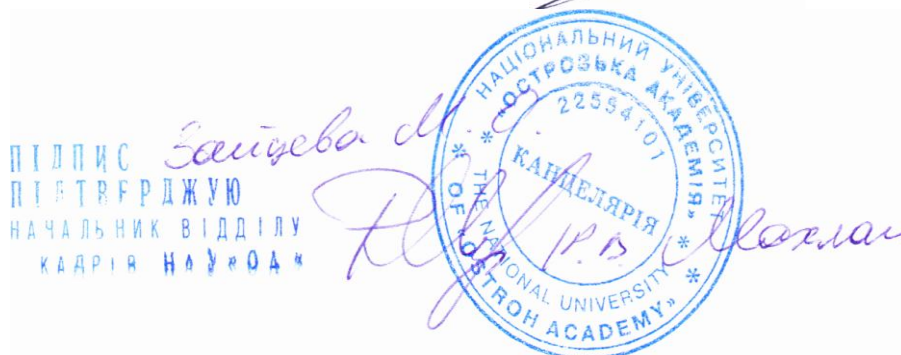 ПІДПИС Зайцева М.
ПІДТВЕРДЖУЮ
НАЧАЛЬНИК ВІДДІЛУ
КАДРІВ НаУ«ОА»
НАЦІОНАЛЬНИЙ УНІВЕРСИТЕТ
«ОСТРОЗЬКА АКАДЕМІЯ»
22554101
КАНЦЕЛЯРІЯ
* THE NATIONAL UNIVERSITY *
* OF «OSTROH ACADEMY» *
Р.В.